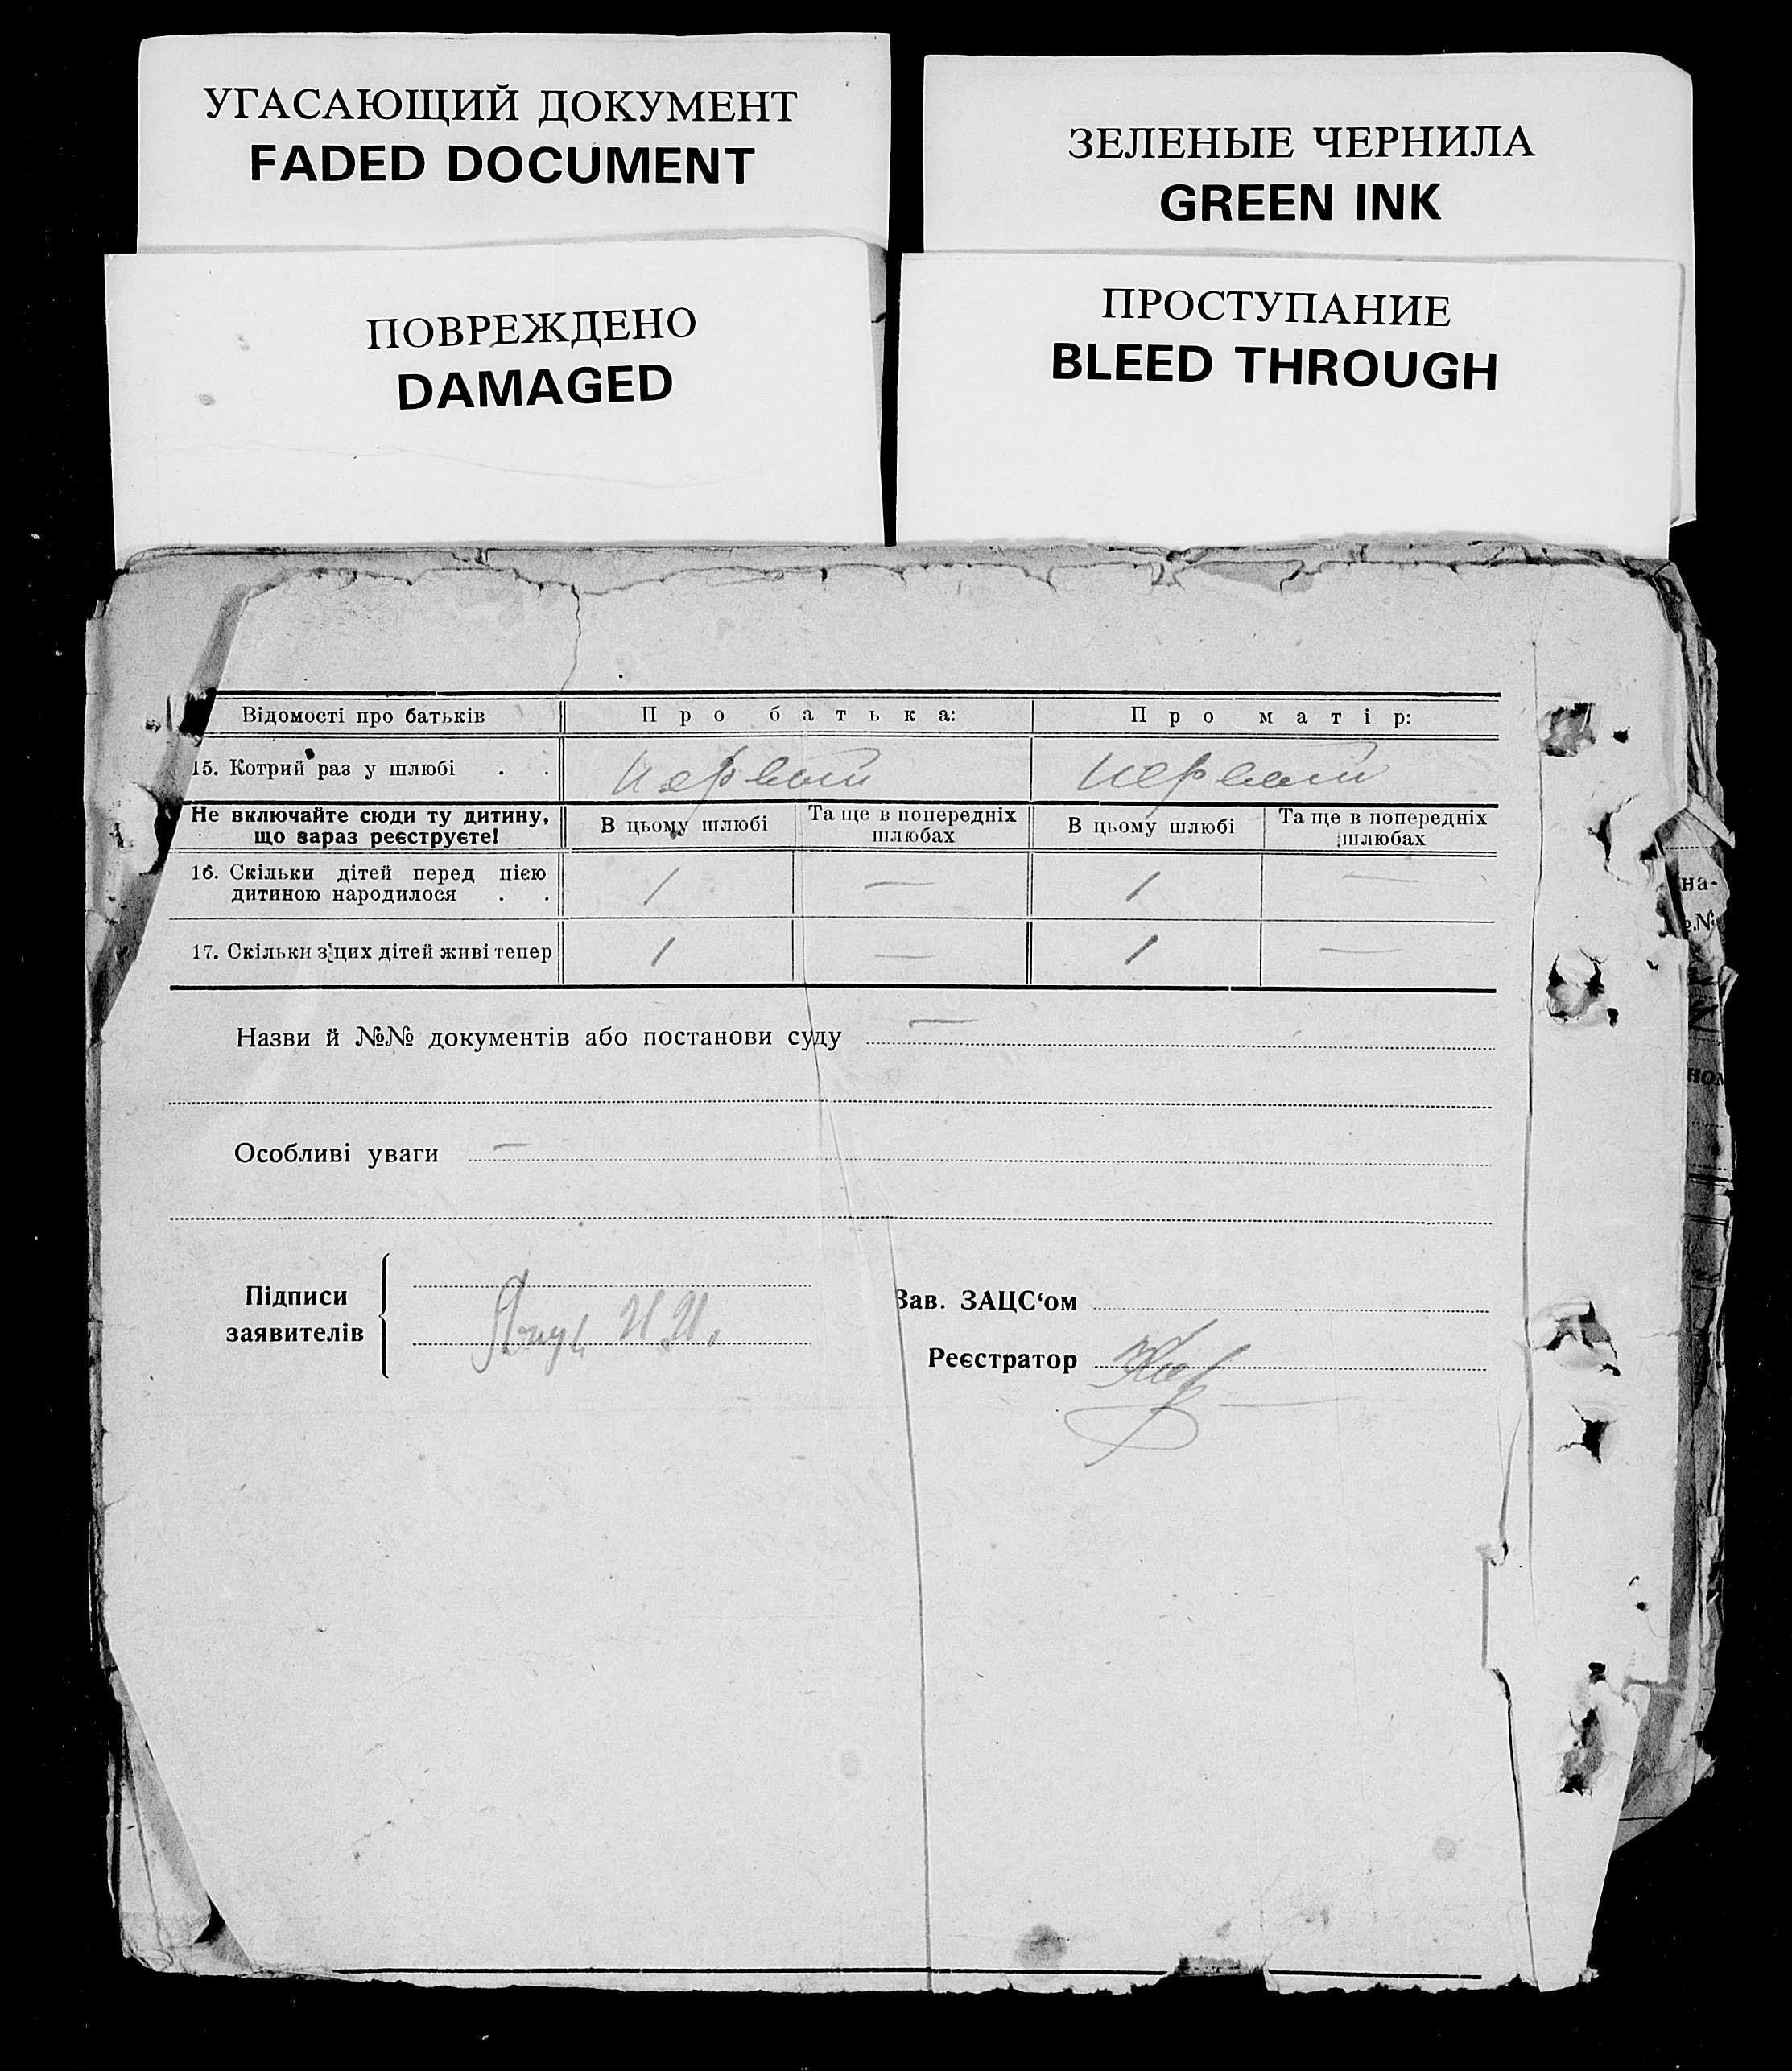 УГАСАЮЩИЙ ДОКУМЕНТ
FADED DOCUMENT
ЗЕЛЕНЫЕ ЧЕРНИЛА
GREEN INK
ПОВРЕЖДЕНО
DAMAGED
ПРОСТУПАНИЕ
BLEED THROUGH
Відомості про батьків Про батька: Про матір:
15. Котрий раз у шлюбі . . первый первый
Не включайте сюди ту дитину, що зараз реєструєте! В цьому шлюбі Та ще в попередніх шлюбах В цьому шлюбі Та ще в попередніх шлюбах
16. Скільки дітей перед цією
дитиною народилося . . 1 — 1 —
17. Скільки з цих дітей живі тепер 1 — 1 —
на-
Назви й №№ документів або постанови суду —
Особливі уваги —
Підписи
заявителів
Зав. ЗАЦС‘ом
Реєстратор